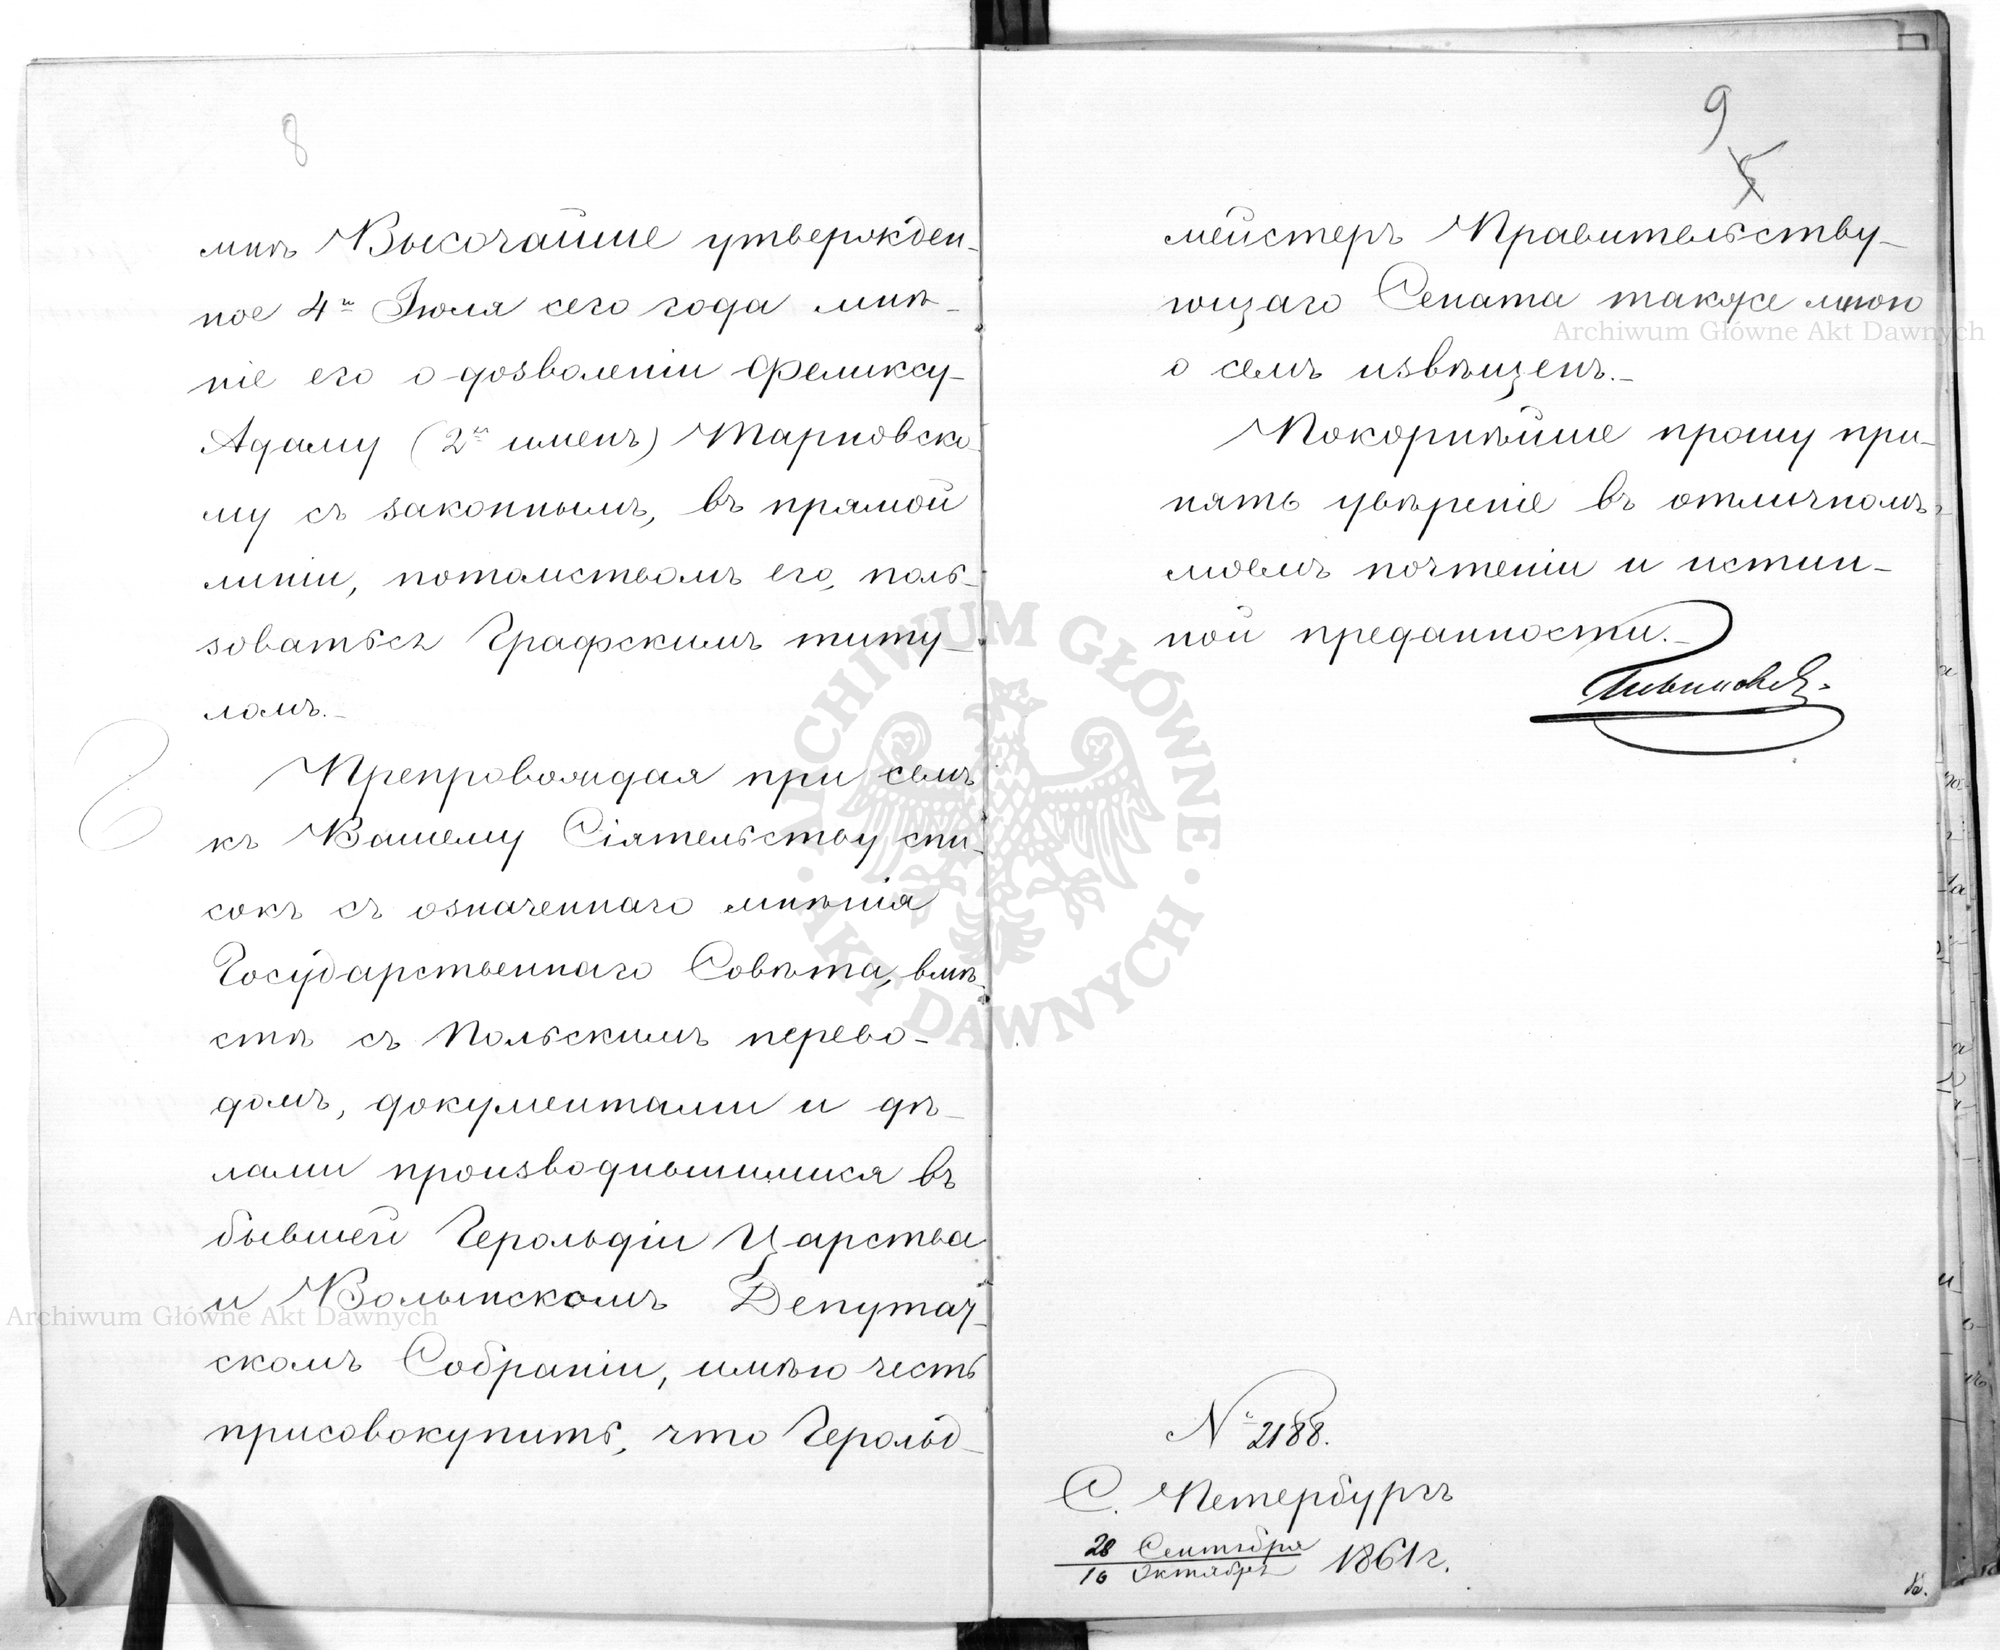 8
микъ Высочайше утвержден-
ное 4го Іюля сего года мнѣ-
ніе его о дозволеніи Феликсу-
Адаму (2хъ именъ) Тарновско
му съ законнымъ, въ прямой
линіи, потомствомъ его, поль-
зоваться Графскимъ титу-
ломъ.-
Препровождая при семъ
къ Вашему Сіятельству спи-
сокъ съ означеннаго мнѣнія
Государственнаго Совѣта, вмѣ-
стѣ съ Польскимъ перево-
домъ, документами и дѣ-
лами производившимися въ
бывшей Герольдіи Царства
и Волынскомъ Депутат-
скомъ Собраніи, имѣю честь
присовокупить, что Герольд-
9
мейстеръ Правительству-
ющаго Сената также мною
о семъ извѣщенъ.-
Покорнѣйше прошу при-
нять увѣреніе въ отличномъ
моемъ почтеніи и истин-
ной преданности.-
№ 2188.
С. Петербургъ
28 Сентября
10 Октября 1861 г.
ARCHIWUM GŁÓWNE AKT DAWNYCH
Archiwum Główne Akt Dawnych
Archiwum Główne Akt Dawnych